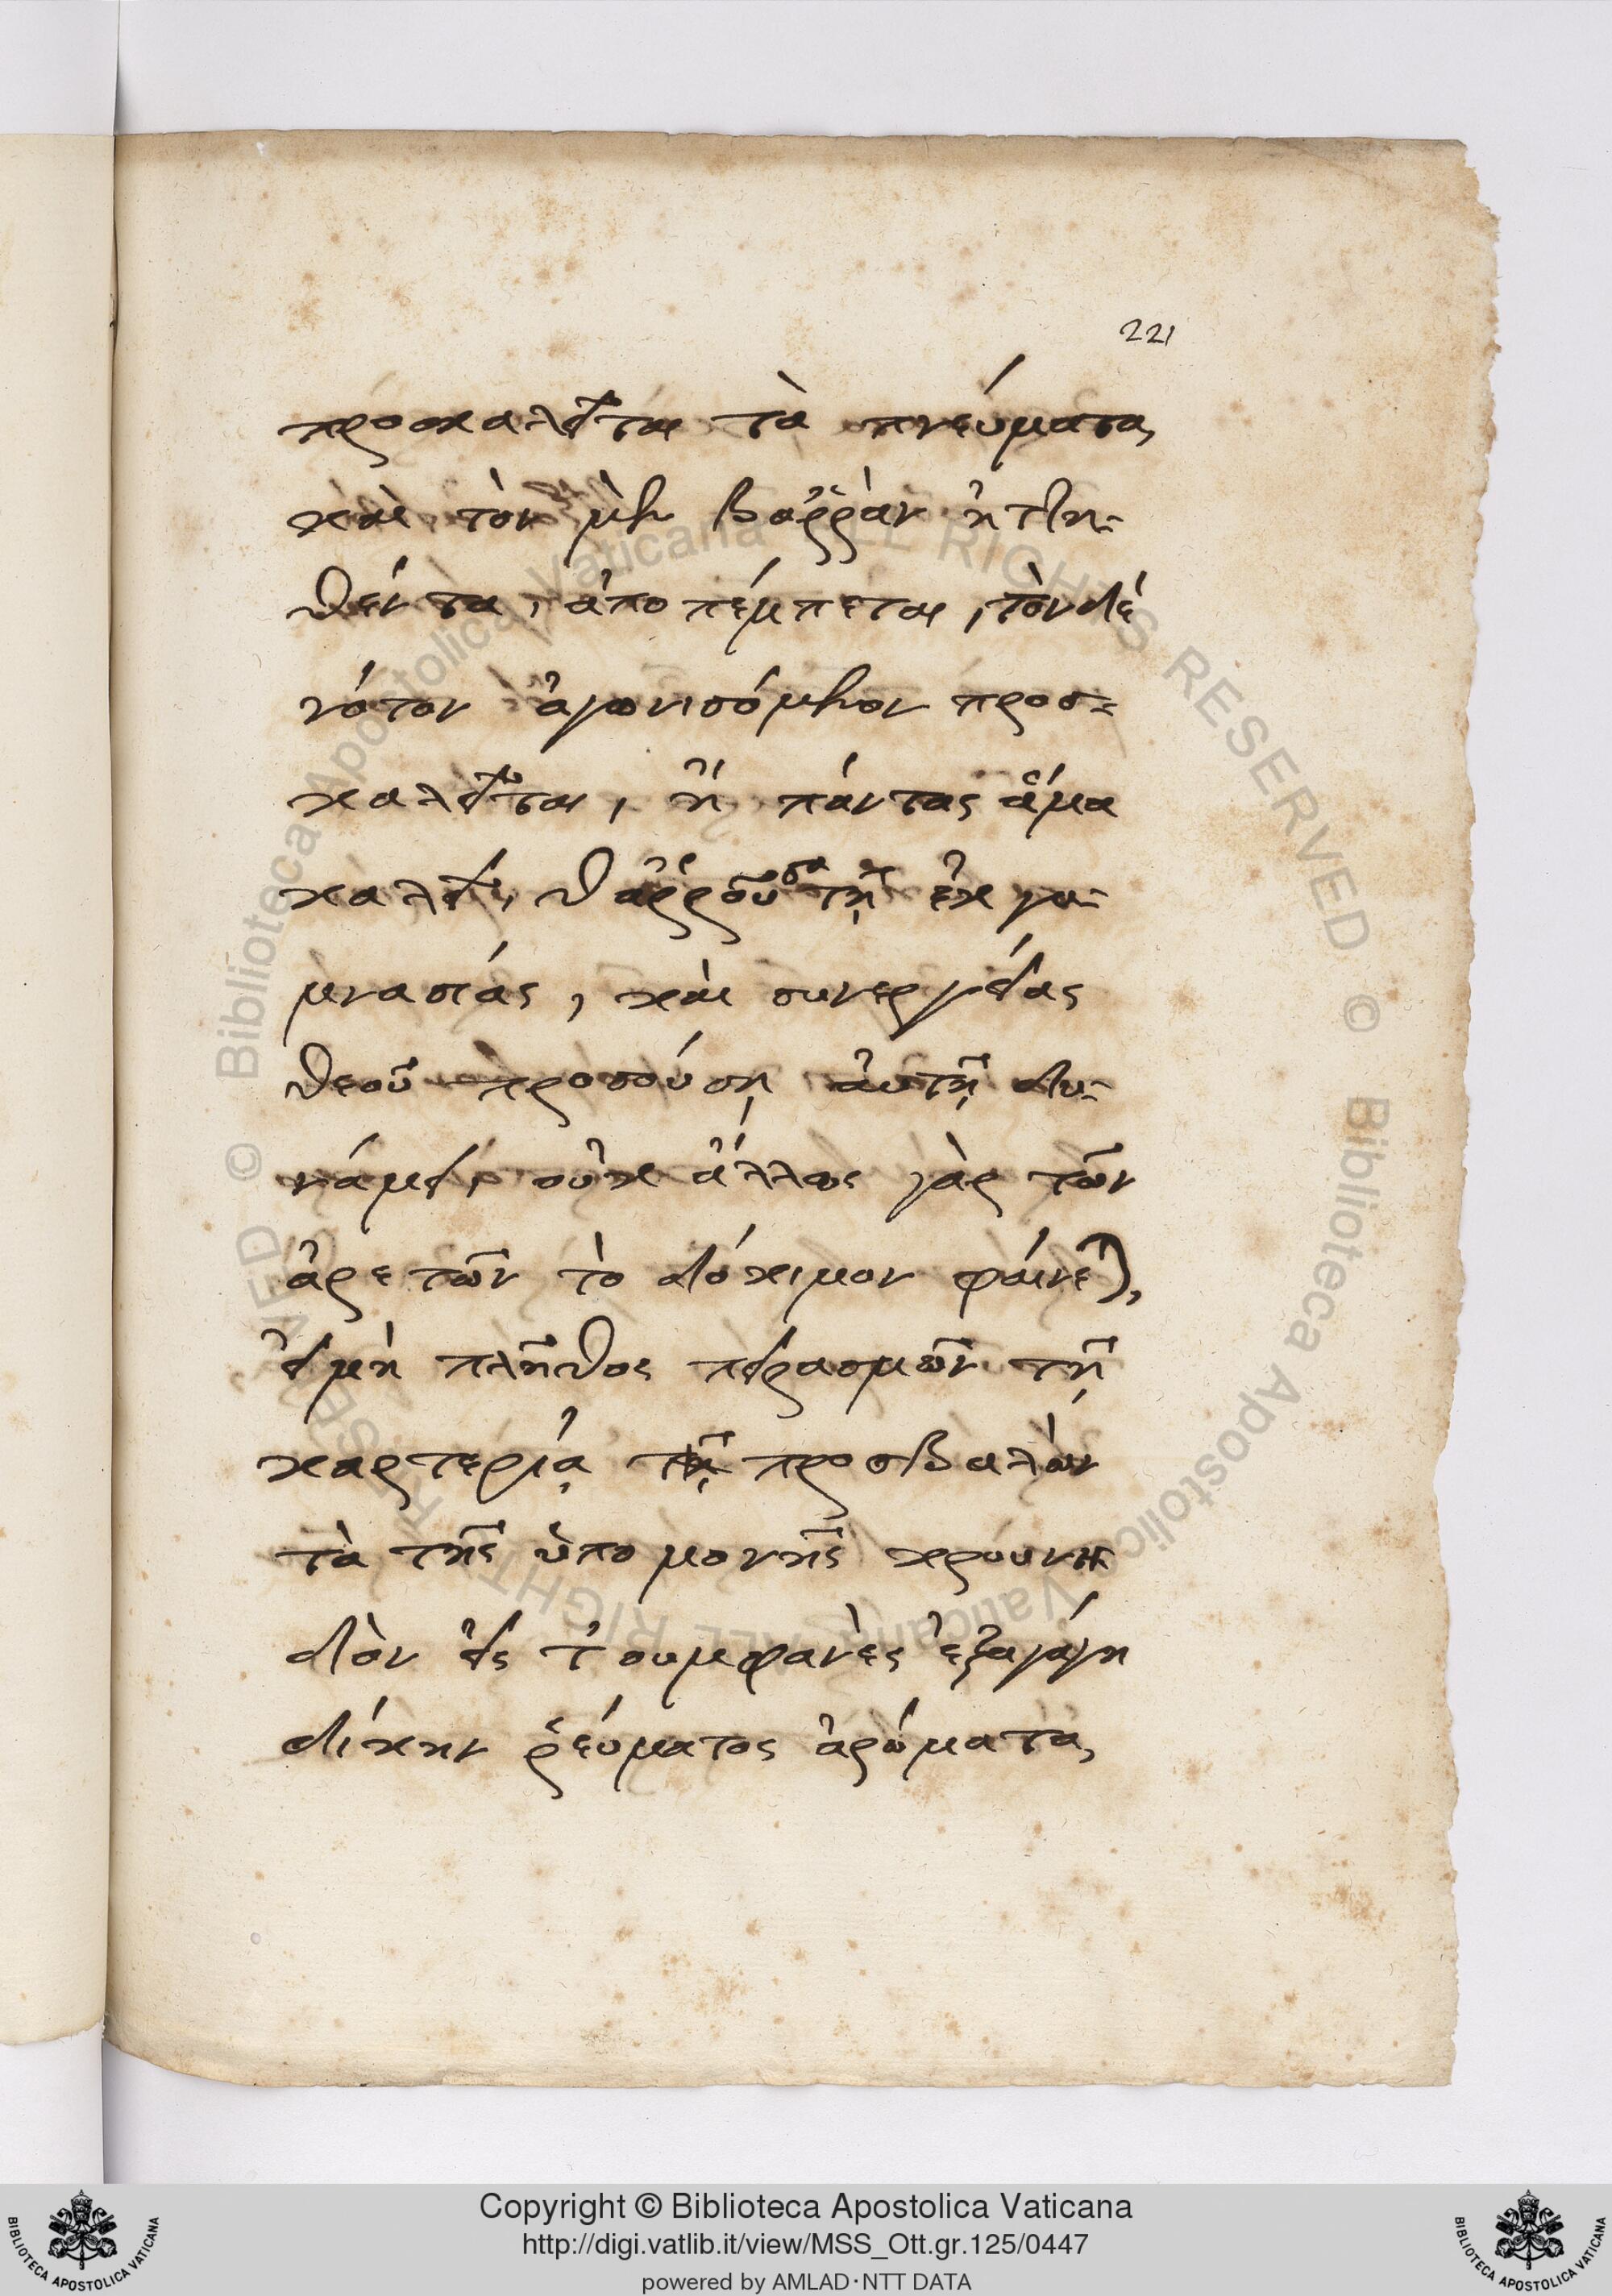 221
προκαλεῖται τὰ πνεύματα
καὶ τὸν μὲν βοῤῥὰν ἡττη-
θέντα, ἀποπέμπεται, τὸν δὲ
νότον ἀγωνισόμενον προσ-
καλεῖται, ἢ πάντας ἅμα
καλεῖ, θαῤῥοῦσα τῆ ἐκ γυ-
μνασίας, καὶ συνεργείας
θεοῦ προσούση αὐτῆ δυ-
νάμει, οὐκ ἄλλως γὰρ τῶν
ἀρετῶν τὸ δόκιμον φαίνεται,
εἰ μὴ πλῆθος πειρασμῶν τῆ
καρτερία προσβαλὼν
τὰ τῆς ὑπομονῆς κρουνη
δὸν εἰς τοὐμφανὲς ἐξαγάγη
δίκην ῥεύματος ἀρώματα,
Copyright © Biblioteca Apostolica Vaticana
http://digi.vatlib.it/view/MSS_Ott.gr.125/0447
powered by AMLAD·NTT DATA
BIBLIOTECA APOSTOLICA VATICANA
BIBLIOTECA APOSTOLICA VATICANA
© Biblioteca Apostolica Vaticana ALL RIGHTS RESERVED
© Biblioteca Apostolica Vaticana ALL RIGHTS RESERVED